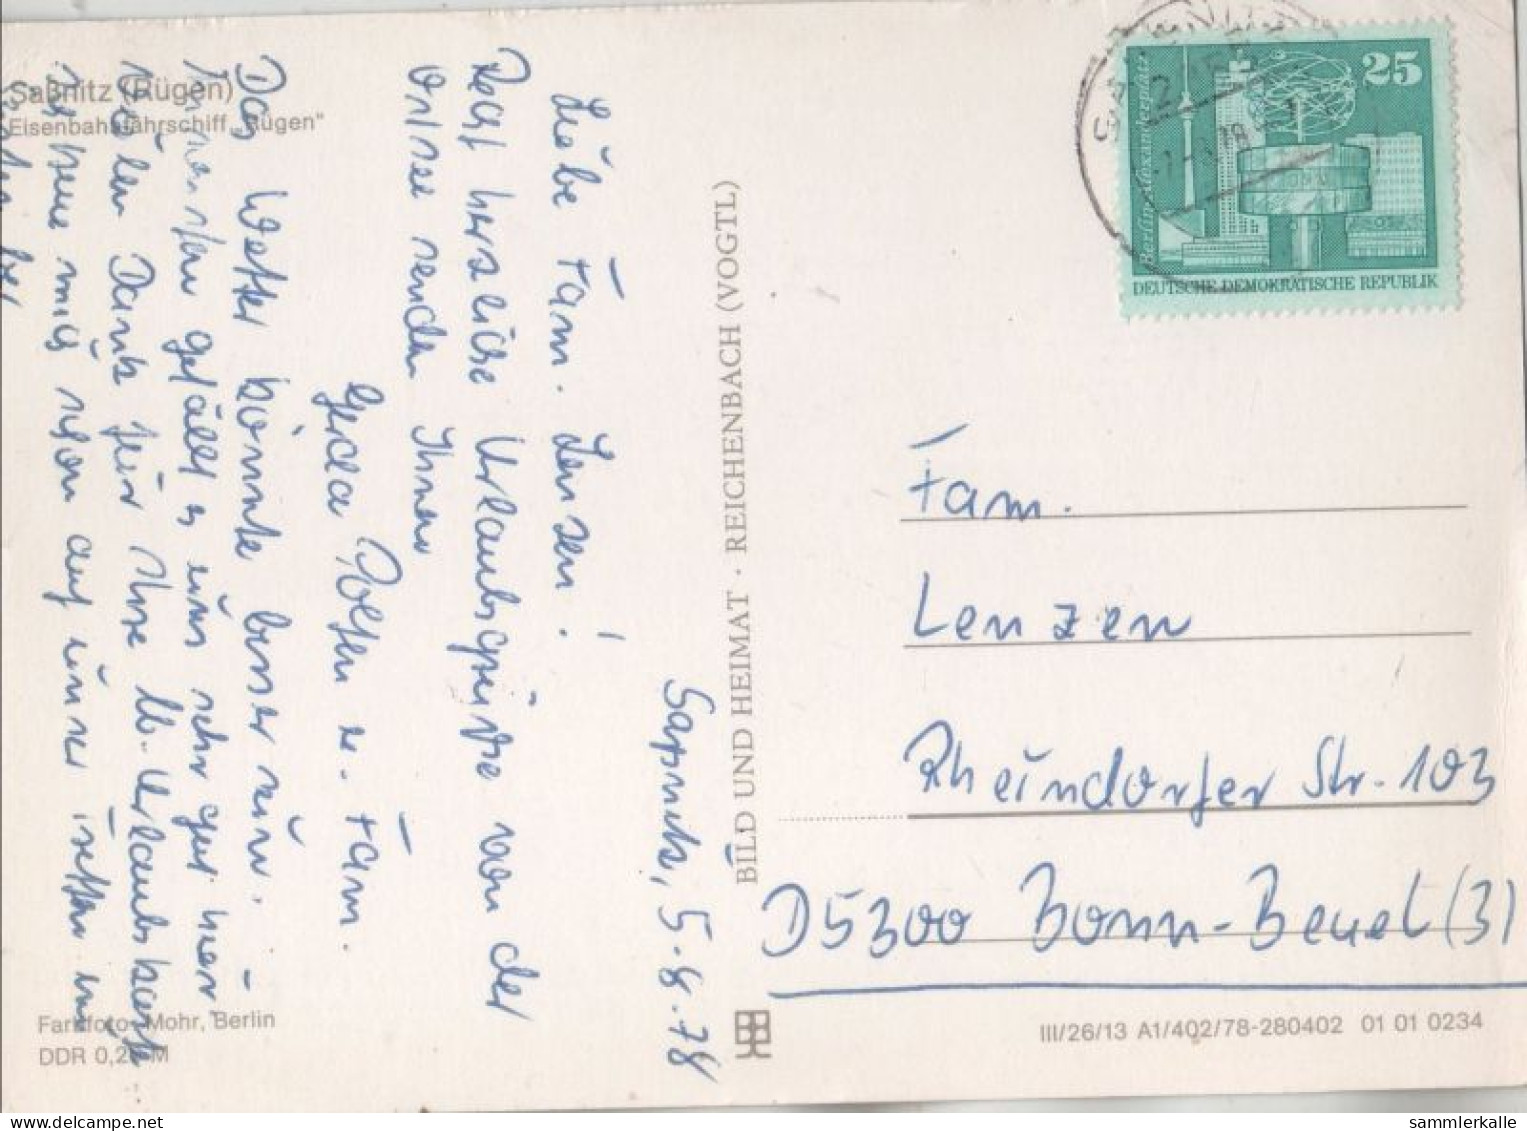 Saßnitz (Rügen)
Eisenbahnfährschiff „Rügen"
Saßnitz, 5.8.78
Liebe Fam. Lenzen!
Recht herzliche Urlaubsgrüße von der
Ostsee senden Ihnen
Gerda u. Fam.
Das Wetter könnte besser sein.
Ansonsten gefällt es uns sehr gut hier
Vielen Dank für Ihre lb. Urlaubskarte
Ich freue mich schon auf unser
BILD UND HEIMAT · REICHENBACH (VOGTL)
Farbfoto: Mohr, Berlin
DDR 0,20 M
25
Berlin-Alexanderplatz
DEUTSCHE DEMOKRATISCHE REPUBLIK
Fam.
Lenzen
Rheindorfer Str. 103
D5300 Bonn-Beuel (3)
III/26/13 A1/402/78-280402 01 01 0234
sammlerkalle